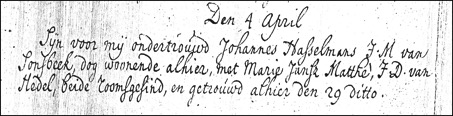 Den 4 April
Sijn voor mij ondertrouwd Johannes Hasselmans J. M van
Sonsbeek, dog woonende alhier, met Marie Jansz Matthé, J. D. van
Hedel, beide Roomsgesind, en getrouwd alhier den 29 ditto.